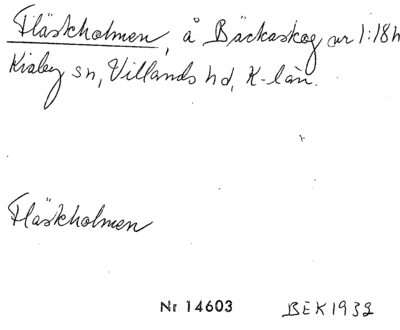 Fläskholmen, å Bäckaskog nr 1:18h
Kiaby sn, Villands hd, K-län.
Fläskholmen
Nr 14603 BEK 1932